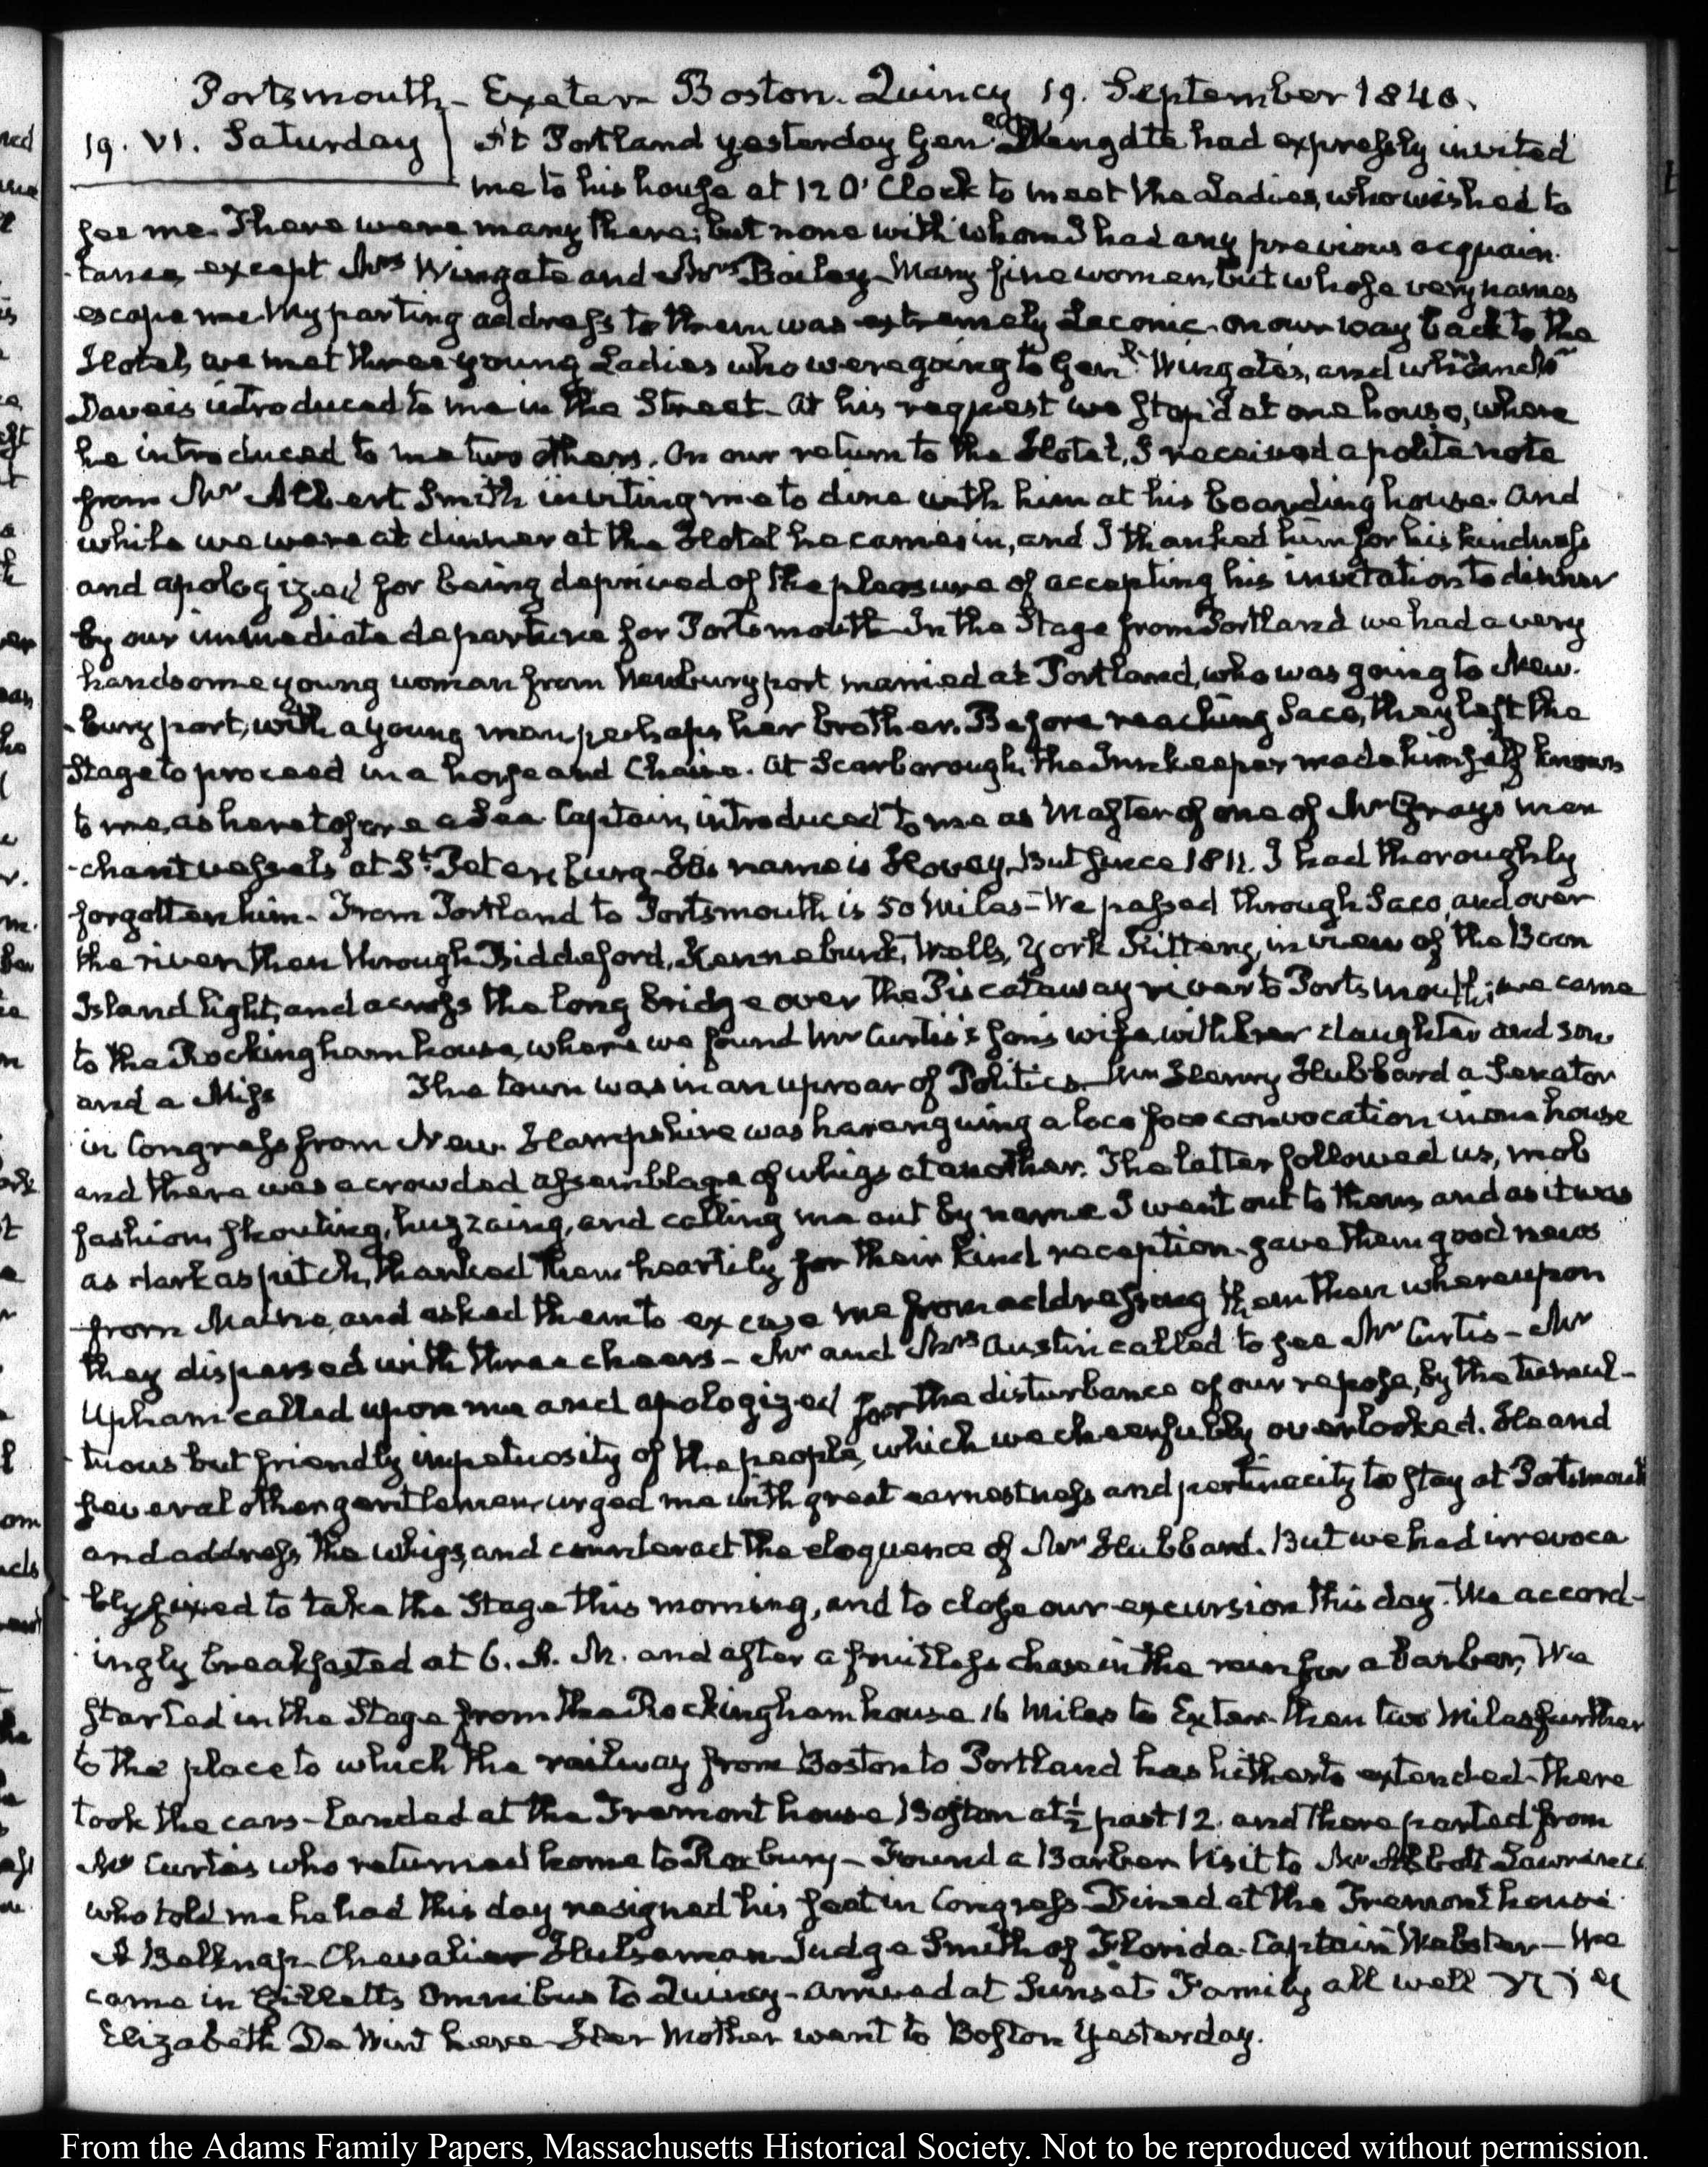 Portsmouth – Exeter – Boston. Quincy 19. September 1840.
19. VI. Saturday At Portland yesterday Genl Wingate had expressly invited
me to his house at 12 O'Clock to meet the Ladies, who wished to
see me. There were many there; but none with whom I had any previous acquain-
tance, except Mrs Wingate and Mrs Bailey – Many fine women, but whose very names
escape me. My parting address to them was extremely Laconic. on our way back to the
Hotel, we met three young Ladies who were going to Genl Wingate's, and whom Mr
Daveis introduced to me in the Street – At his request we stop'd at one house, where
he introduced to me two others. On our return to the Hotel, I received a polite note
from Mr Albert Smith inviting me to dine with him at his boarding house. And
while we were at dinner at the Hotel he came in, and I thanked him for his kindness
and apologized for being deprived of the pleasure of accepting his invitation to dinner
by our immediate departure for Portsmouth – In the Stage from Portland we had a very
handsome young woman from Newburyport married at Portland, who was going to New-
bury port, with a young man perhaps her brother. Before reaching Saco, they left the
Stage to proceed in a horse and Chaise. At Scarborough, the Innkeeper made himself known
to me, as heretofore a Sea Captain, introduced to me as Master of one of Mr Gray's mer
-chant vessels at St. Petersburg – His name is Hovey, But since 1811. I had thoroughly
forgotten him – From Portland to Portsmouth is 50 Miles – We passed through Saco, and over
the river then through Biddeford, Kennebunk, Wells, York Kittery, in view of the Boon
Island light, and across the long bridge over the Piscataway river to Portsmouth; we came
to the Rockingham house, where we found Mr Curtis's son's wife, with her daughter and son
and a Miss The town was in an uproar of Politics – Mr Henry Hubbard a Senator
in Congress from New-Hampshire was haranguing a loco foco convocation in one house
and there was a crowded assemblage of whigs at another. The latter followed us, mob
fashion, shouting, huzzaing, and calling me out by name I went out to them, and as it was
as dark as pitch, thanked them heartily for their kind reception – gave them good news
from Maine, and asked them to excuse me from addressing them then whereupon
they dispersed with three cheers – Mr and Mrs Austin called to see Mr Curtis – Mr
Upham called upon me and apologized for the disturbance of our repose, by the tumul-
tuous but friendly impetuosity of the people, which we cheerfully overlooked. He and
several other gentlemen, urged me with great earnestness and pertinacity to stay at Portsmouth
and address the whigs, and counteract the eloquence of Mr Hubbard. But we had irrevoca
bly fixed to take the Stage this morning, and to close our excursion this day. We accord-
ingly breakfasted at 6. A. M. and after a fruitless chase in the rain for a barber, We
started in the Stage from the Rockingham house 16 Miles to Exeter – then two Miles further
to the place to which the railway from Boston to Portland has hitherto extended – there
took the cars – Landed at the Tremont house Boston at ½ past 12. and there parted from
Mr Curtis who returned home to Roxbury – Found a Barber Visit to Mr Abbott Lawrence
who told me he had this day resigned his seat in Congress – Dined at the Tremont house
A Belknap – Chevalier Hulseman – Judge Smith of Florida – Captain Webster – We
came in Gillett's Omnibus to Quincy – arrived at Sunset Family all well
Elizabeth De Wint here – Her Mother went to Boston yesterday.
From the Adams Family Papers, Massachusetts Historical Society. Not to be reproduced without permission.